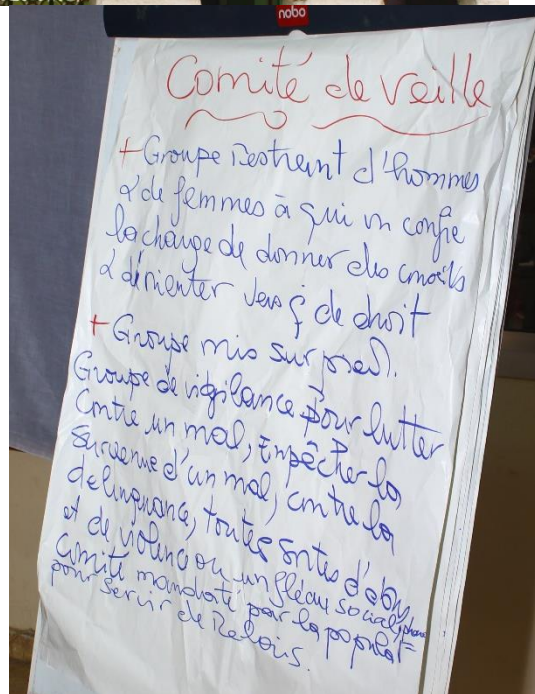 nobo
Comité de veille
+ Groupe restreint d'hommes
& de femmes à qui on confie
la charge de donner des conseils
& d'orienter vers de droit
+ Groupe mis sur pied.
Groupe de vigilance pour lutter
contre un mal, Empêcher la
survenue d'un mal, contre la
delinquance, toutes sortes d'abus
et de violence ou un fléau social,
Comité mandaté par la populat°
pour servir de Relais.